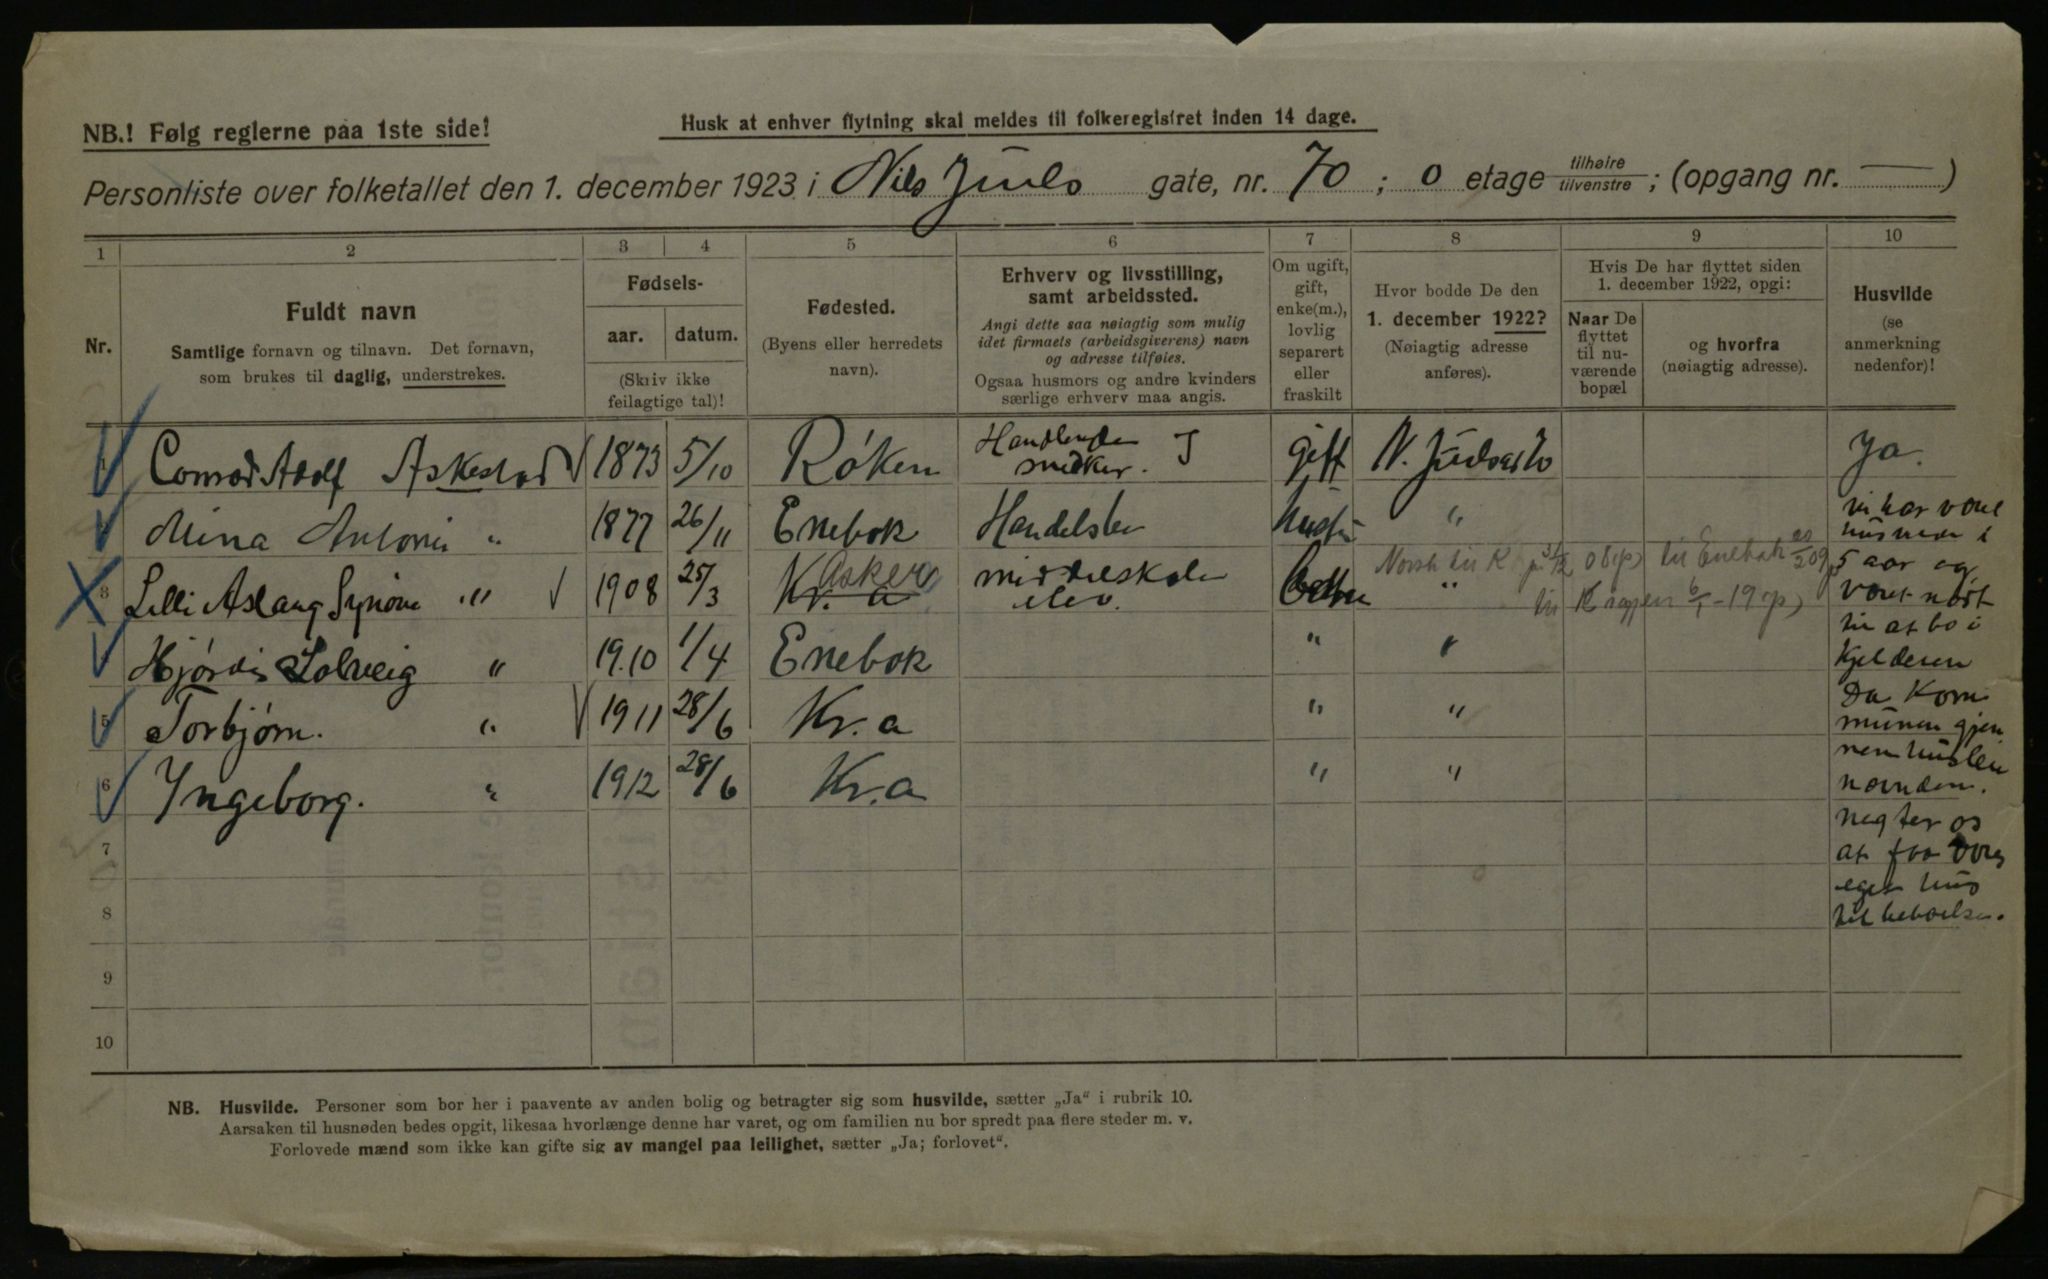 NB.! Følg reglerne paa 1ste side!
Husk at enhver flytning skal meldes til folkeregistret inden 14 dage.
Personliste over folketallet den 1. december 1923 i Nils Juels gate, nr. 70 ; 0 etage tilhøire tilvenstre ; (opgang nr. — )
1 2 3 4 5 6 7 8 9 10
Nr.
Fuldt navn
Samtlige fornavn og tilnavn. Det fornavn,
som brukes til daglig, understrekes.
Fødsels-
aar. datum.
(Skriv ikke
feilagtige tal)!
Fødested.
(Byens eller herredets
navn).
Erhverv og livsstilling,
samt arbeidssted.
Angi dette saa nøiagtig som mulig
idet firmaets (arbeidsgiverens) navn
og adresse tilføies.
Ogsaa husmors og andre kvinders
særlige erhverv maa angis.
Om ugift,
gift,
enke(m.),
lovlig
separert
eller
fraskilt
Hvor bodde De den
1. december 1922?
(Nøiagtig adresse
anføres).
Hvis De har flyttet siden
1. december 1922, opgi:
Naar De
flyttet
til nu-
værende
bopæl
og hvorfra
(nøiagtig adresse).
Husvilde
(se
anmerkning
nedenfor)!
Conrad Adolf Askestad 1873 5/10 Røken Handlende snedker. gift N. Juelsgt 70 Ja.
Mina Antonie " 1877 26/11 Enebok Handelsbr hustru "
3 Lilli Aslaug Synøve " 1908 25/3 Kr. a Asker middelskole elev. "
Norsk til K 08 til Enebak 20/2 09
til Kragerø 6/1 - 19
Hjørdis Solveig " 1910 1/4 Enebok " "
5 Torbjørn. " 1911 28/6 Kr. a " "
6 Ingeborg. " 1912 28/6 Kr. a " "
vi har været
husvilde i
5 aar og
været nødt
til at bo i
kjelderen
Da Kom
munen gjen
nem husleie
nævnden.
negter os
at faa vores
eget hus
til beboelse.
7
8
9
10
NB. Husvilde. Personer som bor her i paavente av anden bolig og betragter sig som husvilde, sætter „Ja" i rubrik 10.
Aarsaken til husnøden bedes opgit, likesaa hvorlænge denne har varet, og om familien nu bor spredt paa flere steder m. v.
Forlovede mænd som ikke kan gifte sig av mangel paa leilighet, sætter „Ja; forlovet".